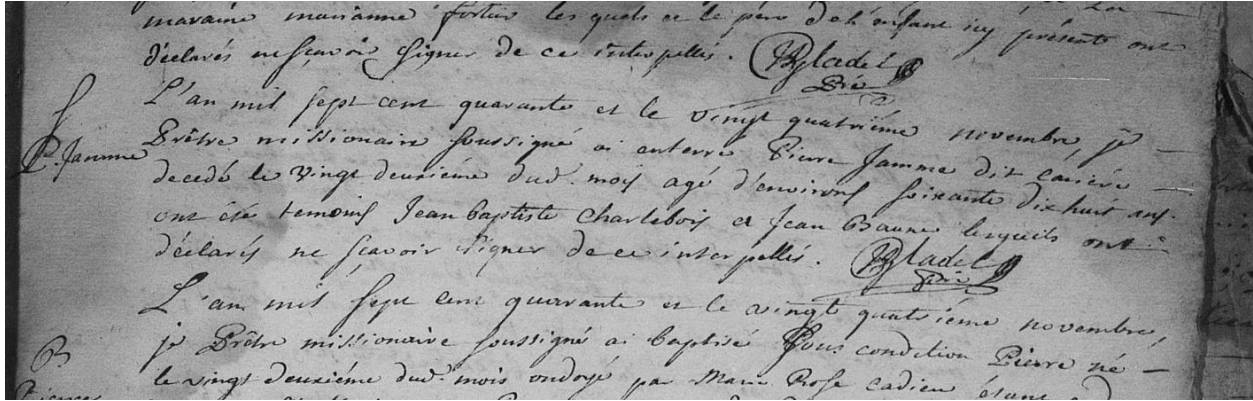 maraine marianne fortier lesquels et le pere de l'enfant icy présents ont
déclarés ne sçavoir signer de ce interpellés.
Ptre
L'an mil sept cent quarante et le vingt quatriéme novembre, je
S
P. Jamme
Prêtre missionaire soussigné ai enterré Pierre Jamme dit cariére
decedé le vingt deuxiéme dud. mois agé d'environs soixante dix huit ans.
ont été temoins Jean baptiste Charlebois et Jean Baune lesquels ont
déclarés ne sçavoir signer de ce interpellés.
Ptre
L'an mil sept cent quarante et le vingt quatriéme novembre,
je Prêtre missionaire soussigné ai baptisé sous condition Pierre né
B
le vingt deuxiéme dud. mois ondoyé par Marie Rose cadieu étant